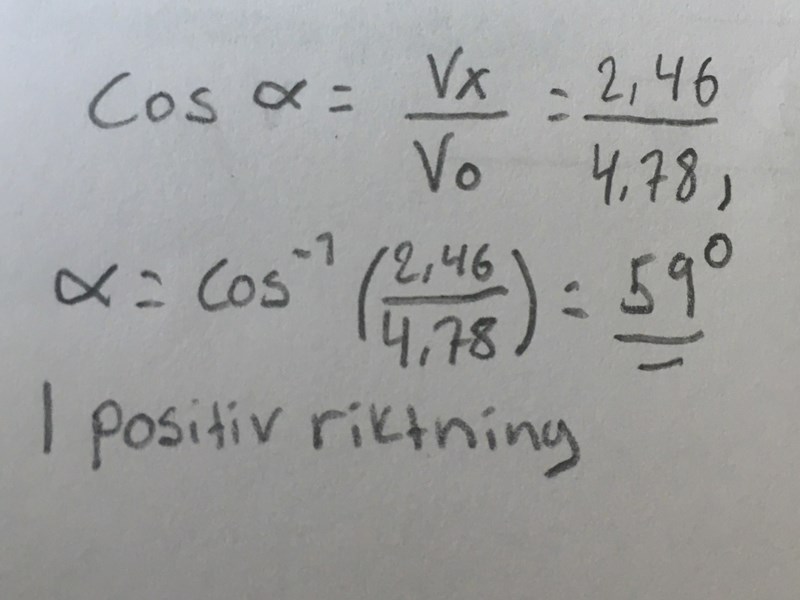 Cos α = Vx/Vo = 2,46/4,78,
α = cos⁻¹ (2,46/4,78) = 59°
I positiv riktning